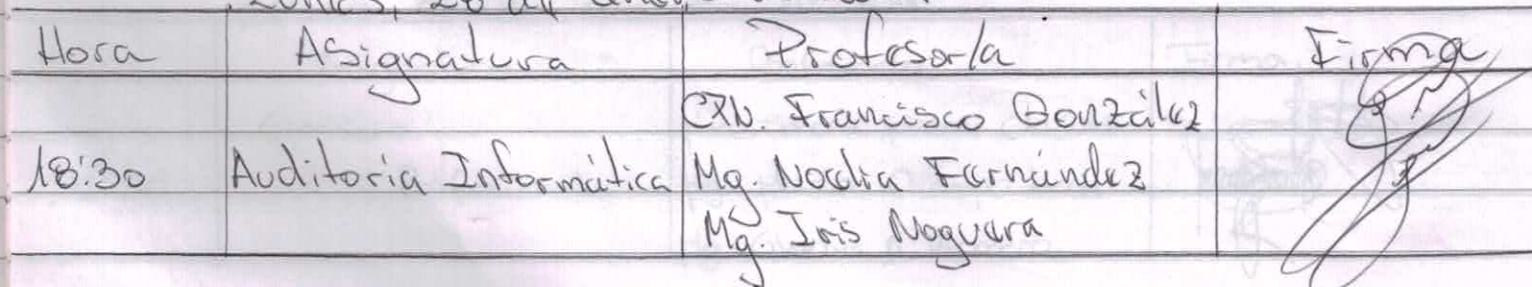 Lunes, 28 de
Hora Asignatura Profesor/a Firma
CPN. Francisco González
18:30 Auditoria Informática Mg. Noelia Fernández
Mg. Iris Noguera